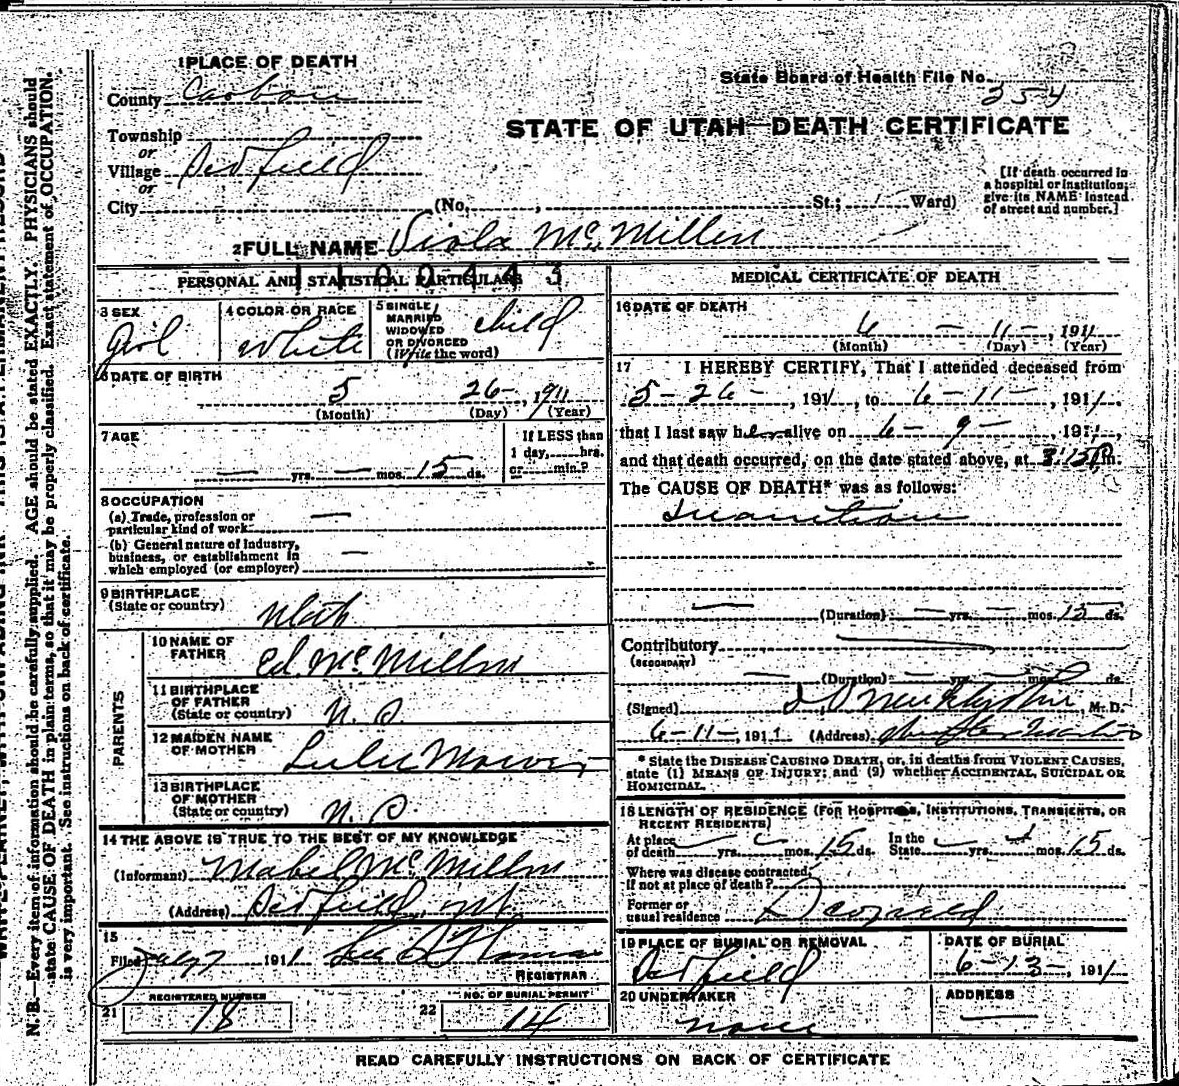 1 PLACE OF DEATH
State Board of Health File No. 354
County Carbon
STATE OF UTAH—DEATH CERTIFICATE
Township
or
Village
or
City (No. , St.; Ward)
[If death occurred in
a hospital or institution,
give its NAME instead
of street and number.]
2 FULL NAME Viola McMillin
PERSONAL AND STATISTICAL PARTICULARS
1100443
3 SEX
Girl
4 COLOR OR RACE
White
5 SINGLE,
MARRIED
WIDOWED
OR DIVORCED
(Write the word)
child
6 DATE OF BIRTH
5 26-, 1911
(Month) (Day) (Year)
7 AGE
— yrs. — mos. 15 ds.
If LESS than
1 day, hrs.
or min.?
8 OCCUPATION
(a) Trade, profession or
particular kind of work —
(b) General nature of Industry,
business, or establishment in
which employed (or employer) —
9 BIRTHPLACE
(State or country)
Utah
PARENTS
10 NAME OF
FATHER
Ed. McMillin
11 BIRTHPLACE
OF FATHER
(State or country)
N. C.
12 MAIDEN NAME
OF MOTHER
Lulu
13 BIRTHPLACE
OF MOTHER
(State or country)
N. C.
14 THE ABOVE IS TRUE TO THE BEST OF MY KNOWLEDGE
(Informant) Mabel McMillin
(Address)
15
Filed July 7 1911
REGISTRAR
REGISTERED NUMBER
21 18
NO. OF BURIAL PERMIT
22 14
MEDICAL CERTIFICATE OF DEATH
16 DATE OF DEATH
6 - 11 -, 1911
(Month) (Day) (Year)
17 I HEREBY CERTIFY, That I attended deceased from
5-26-, 1911, to 6-11-, 1911,
that I last saw her alive on 6-9-, 1911,
and that death occurred, on the date stated above, at 3:15 P m.
The CAUSE OF DEATH* was as follows:
Inanition
(Duration) — yrs. — mos. 15 ds.
Contributory
(SECONDARY)
(Duration) — yrs. mos. ds.
(Signed) M. D.
6-11-, 1911 (Address)
* State the DISEASE CAUSING DEATH, or, in deaths from VIOLENT CAUSES,
state (1) MEANS OF INJURY; and (2) whether ACCIDENTAL, SUICIDAL OR
HOMICIDAL.
18 LENGTH OF RESIDENCE (FOR HOSPITALS, INSTITUTIONS, TRANSIENTS, OR
RECENT RESIDENTS)
At place
of death yrs. mos. 15 ds.
In the
State yrs. mos. 15 ds.
Where was disease contracted,
if not at place of death?
Former or
usual residence
19 PLACE OF BURIAL OR REMOVAL
DATE OF BURIAL
6-13-, 1911
20 UNDERTAKER
none
ADDRESS
—
READ CAREFULLY INSTRUCTIONS ON BACK OF CERTIFICATE
N. B.—Every item of information should be carefully supplied. AGE should be stated EXACTLY. PHYSICIANS should
state CAUSE OF DEATH in plain terms, so that it may be properly classified. Exact statement of OCCUPATION
is very important. See instructions on back of certificate.